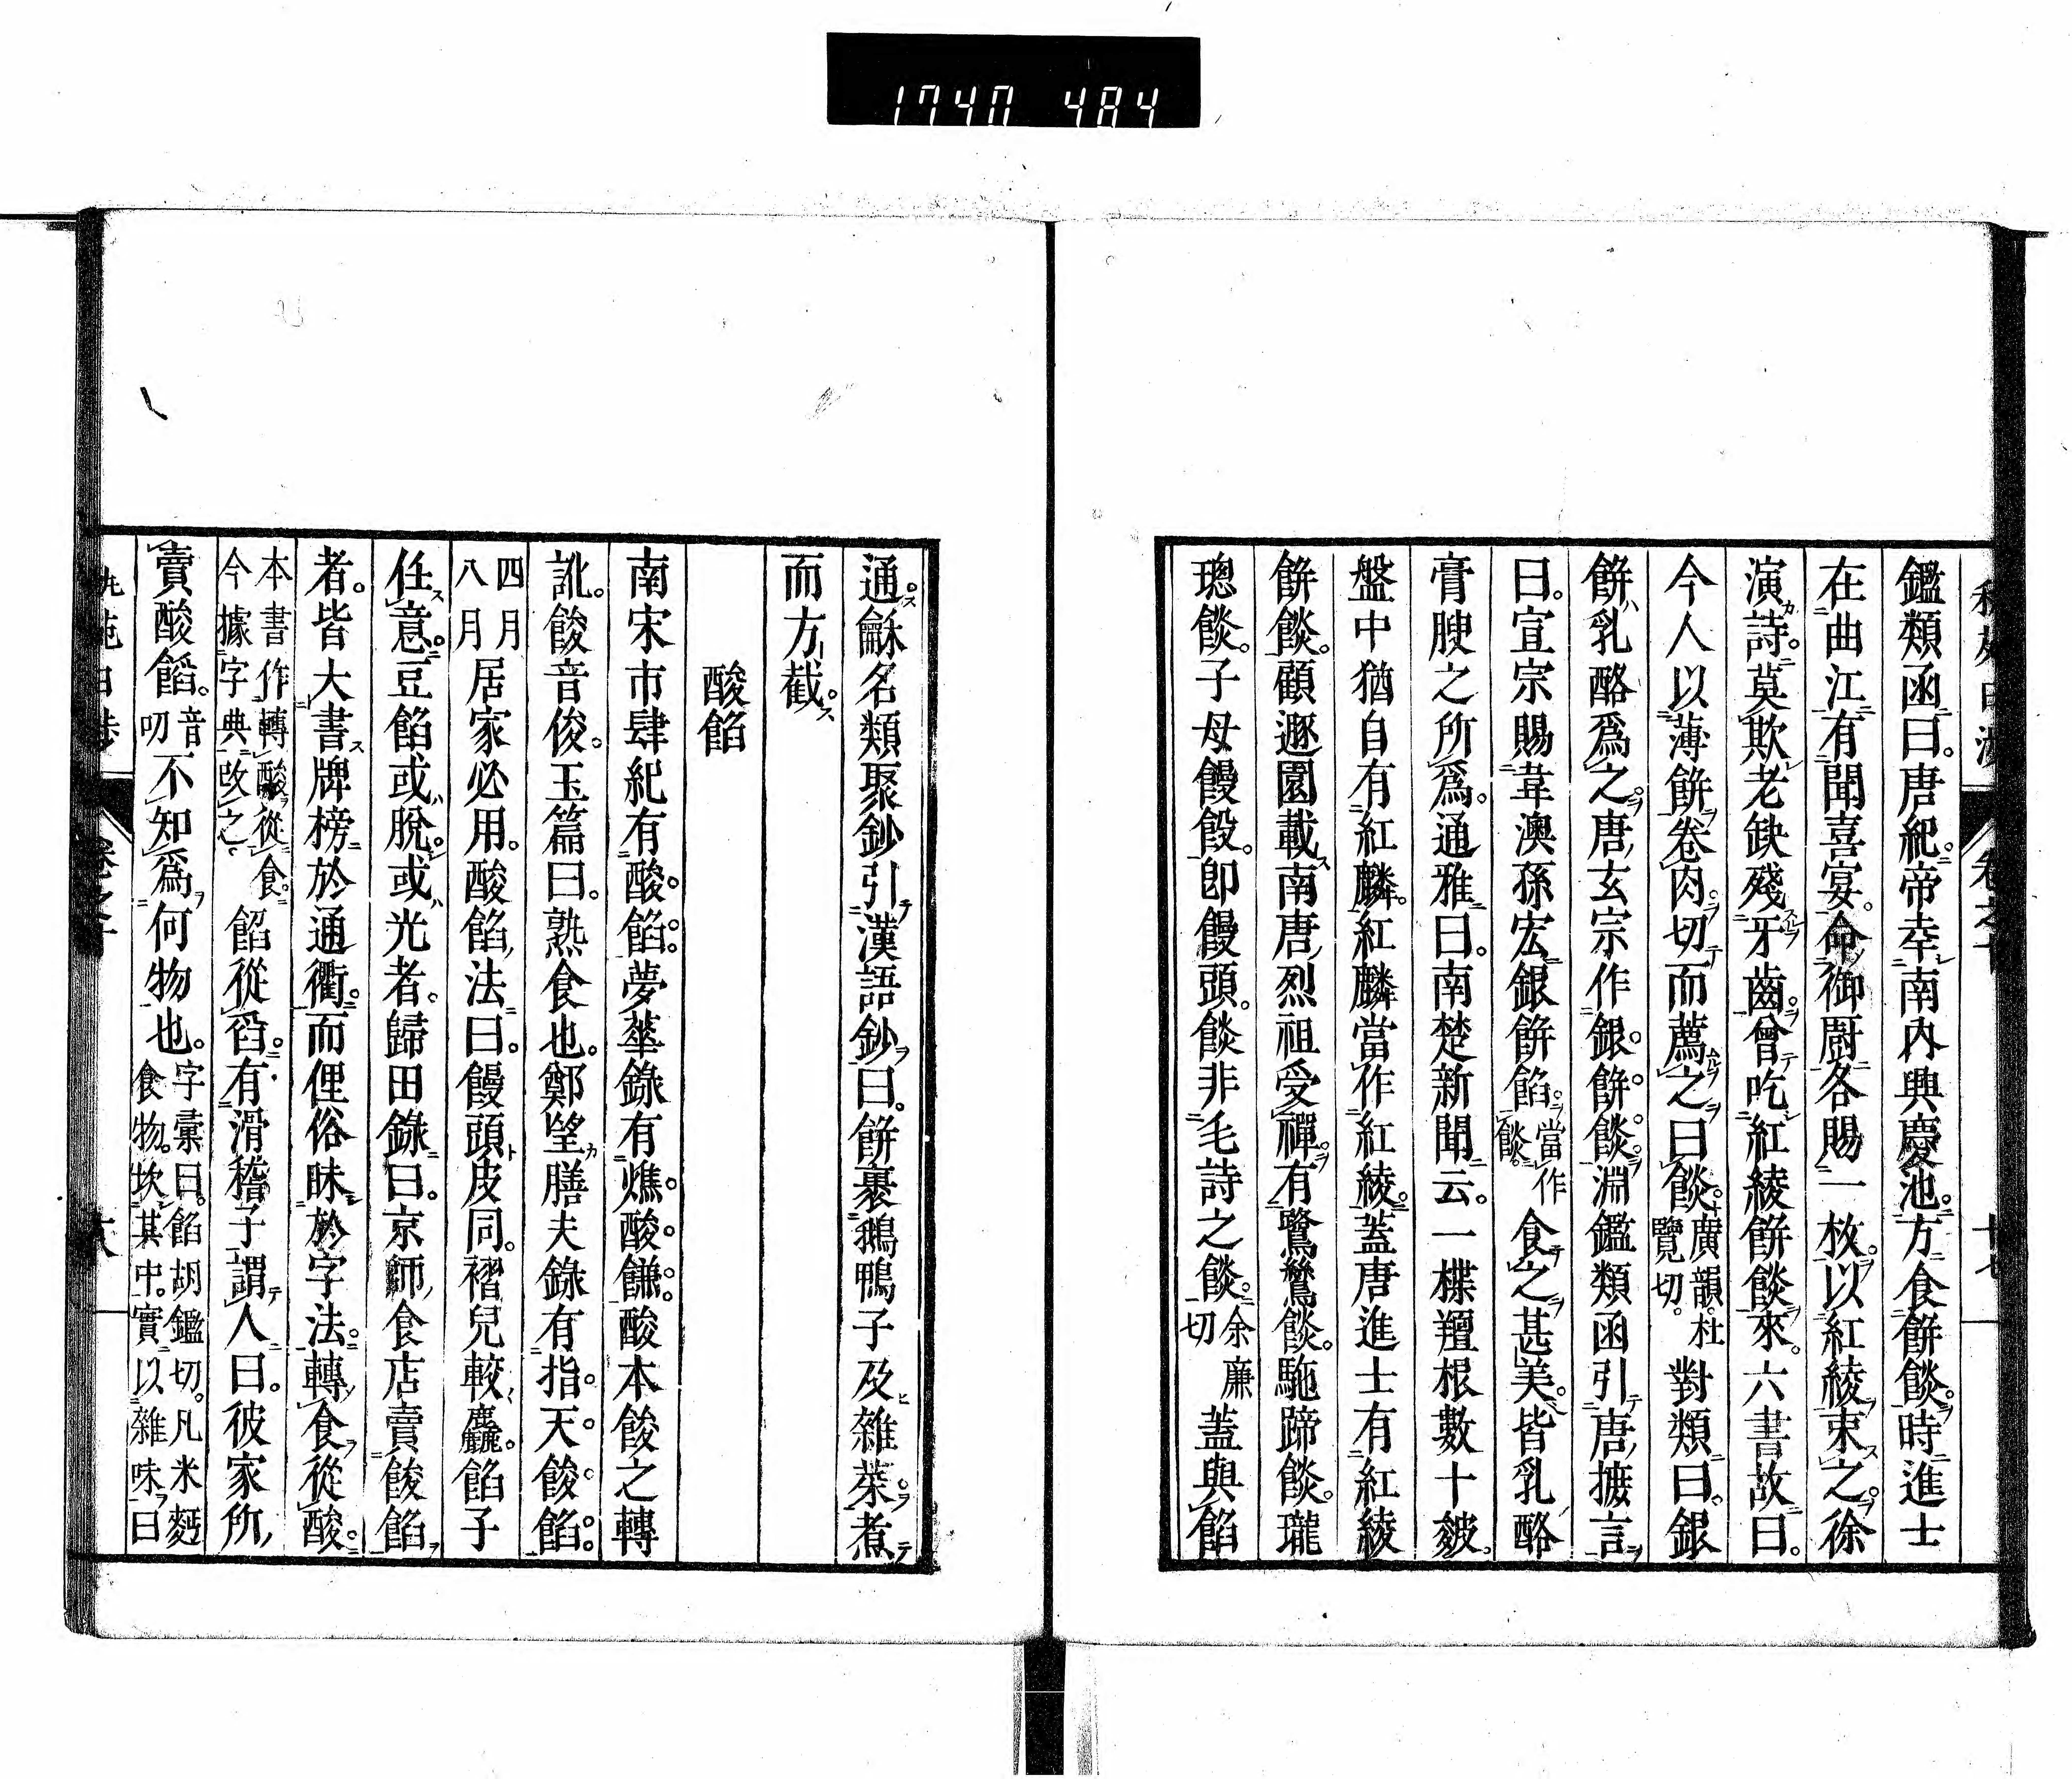 1740 484
鑑類函曰。唐紀。帝幸南内興慶池。方食餅餤。時進士
在曲江有聞喜宴。命御厨各賜一枚。以紅綾束之。徐
演詩。莫欺老缺殘牙齒。曾吃紅綾餅餤來。六書故曰。
今人以薄餅卷肉。切而薦之曰餤。廣韻。杜覽切。對類曰。銀
餅乳酪爲之。唐玄宗作銀餅餤。淵鑑類函引唐摭言
曰。宣宗賜韋澳孫宏銀餅餡。當作餤。食之甚美。皆乳酪
膏腴之所爲。通雅曰。南楚新聞云。一楪羶根數十皴。
盤中猶自有紅麟。紅麟當作紅綾。蓋唐進士有紅綾
餅餤。顧遯園載南唐烈祖受禪。有鷺鷥餤。駞蹄餤。瓏
璁餤。子母饅餤。卽饅頭。餤非毛詩之餤。余廉切 蓋與餡
通。龢名類聚鈔引漢語鈔曰。餅裹鵝鴨子及雜菜。煮
而方截。
酸餡
南宋市肆紀有酸餡。夢華錄有燋酸饊。酸本餕之轉
訛。餕音俊。玉篇曰。熟食也。鄭望膳夫錄有指天餕餡。
四月八月 居家必用。酸餡法曰。饅頭皮同。褶兒較麤。餡子
任意。豆餡或脫。或光者。歸田錄曰。京師食店賣餕餡
者。皆大書牌榜於通衢。而俚俗昧於字法。轉食從酸。
本書作轉酸從食。今據字典改之。餡從臽。有滑稽子謂人曰。彼家所
賣酸餡。音叨 不知爲何物也。字彙曰。餡胡鑑切。凡米麪食物。坎其中。實以雜味曰
卷之